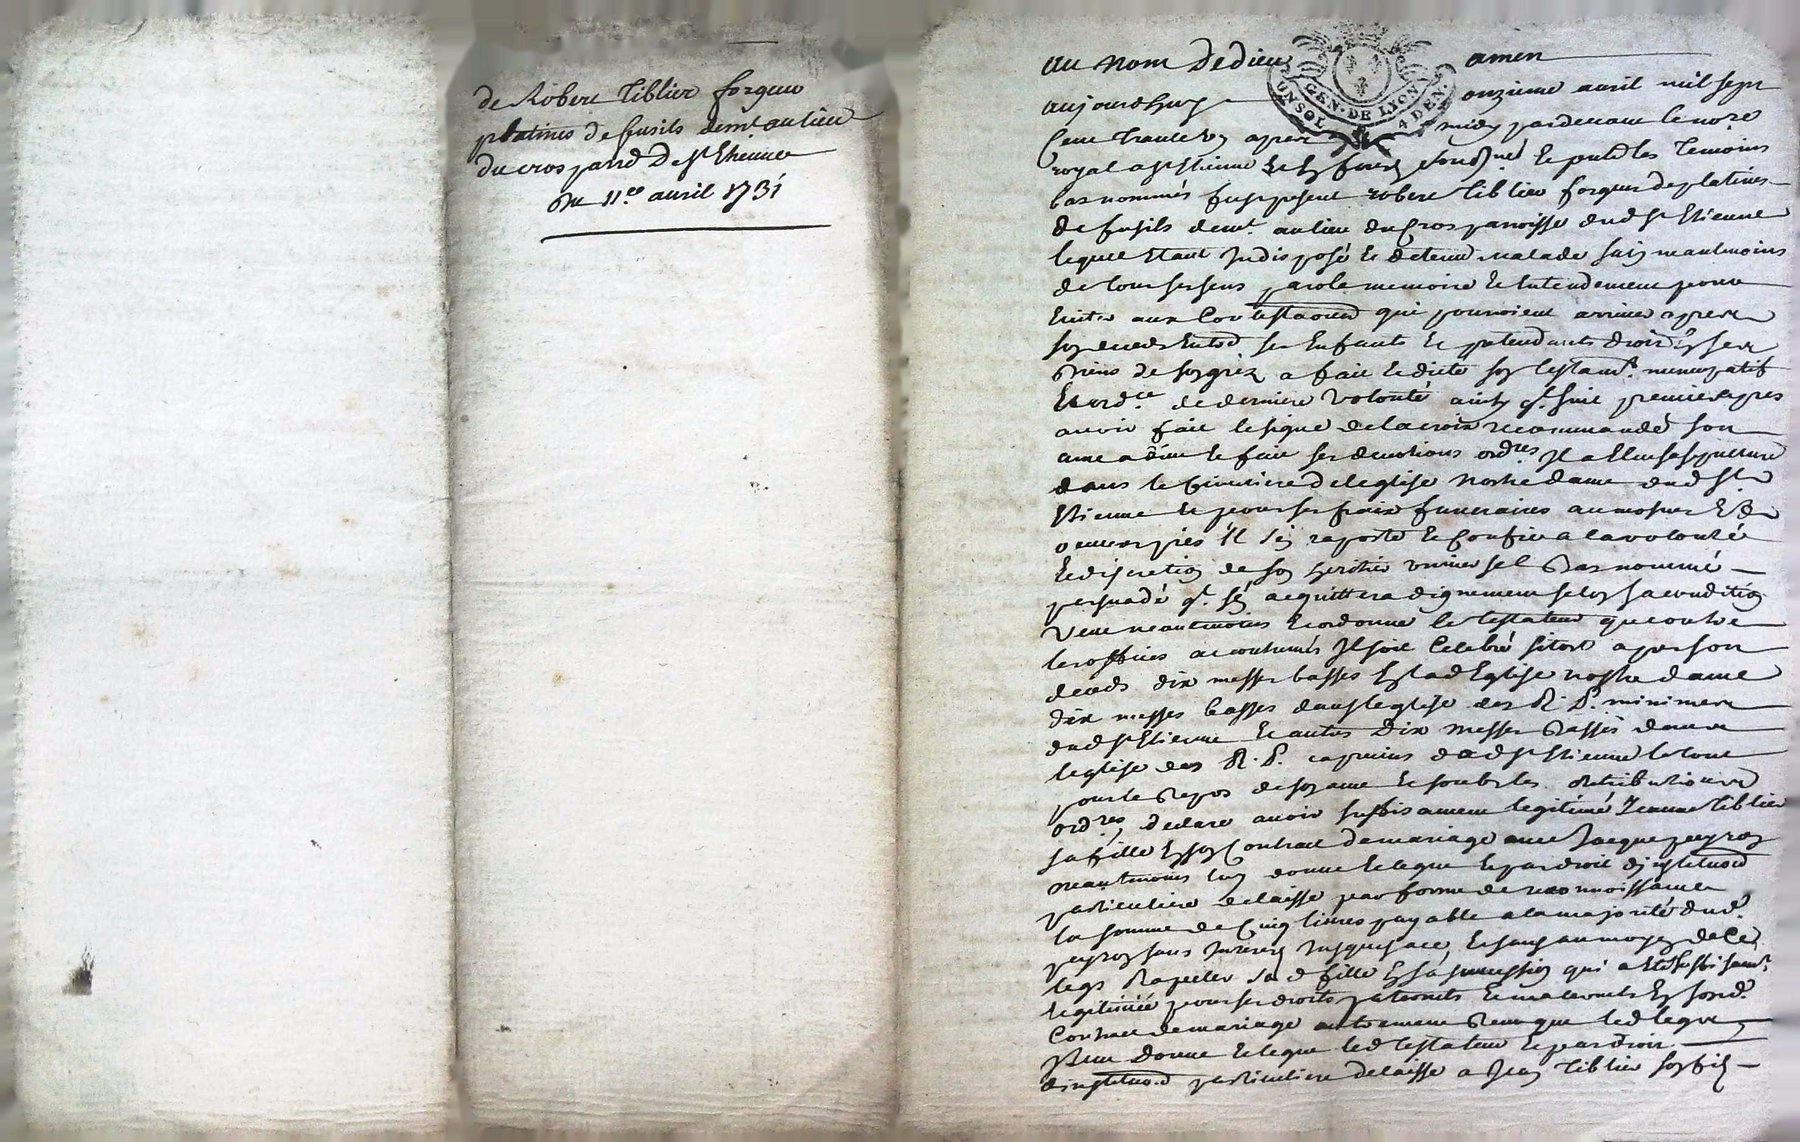 de Robert Tiblier forgeur
platines de fusils demt au lieu
du cros parre De St Etienne
Du 11e avril 1731
au nom de dieu amen
GEN. DE LYON 4 DEN.
aujourdhuy onzieme avril mil sept
Cent trente un apres midy pardevant le nore
royal a St Etienne en forez soussigné et presents les temoins
bas nommés fut present robert tiblier forgeur de platines
de fusils demt. au lieu du Cros parroisse dud St Etienne
lequel Etant Indisposé et detenu malade sain neantmoins
de tous ses sens parole memoire et Entendement pour
Eviter aux Contestaons qui pourroient arriver apres
son deceds Entre ses Enfants et pretendants droit en ses
Biens de son gré a fait et dicté son testamt. nuncupatif
Et ordce. de derniere volonté ainsy qt. suit premier apres
avoir fait le signe de la croix recommandé son
ame a dieu et fait ses devotions ordres Il a Elu sa sepulture
dans le Cimetiere de leglise nostre dame dud St
Etienne et pour ses fraix funeraires aumosnes Et
oeuvres pies Il sen raporte et Confie a la volonté
Et discretion de son heritier universel Bas nommé
persuadé qt. sen acquittera dignement selon sa condition
veut neantmoins Et ordonne le testateur que outre
les offices accoutumés Il soit Celebré sitost apres son
deceds dix messes basses En lad Eglise nostre dame
dix messes basses dans leglise des R. P. minimes
dud St Etienne Et autres Dix messes Basses dans
leglise des R. P. capucins dud St Etienne le tout
pour le Repos de son ame Et soubs les Retributions
ordres, declare avoir suffisament legitimé Jeanne tiblier
sa fille En son Contrat de mariage avec Jacque peyron
neantmoins luy donne et legue Et par droit dinstituon
particuliere delaisse par forme de reconnoissance
la somme de Cinq livres payable a la majorité dud.
peyron sans Interest Jusques a ce, Et sans au moyen de Ce
legs Rapeller sad fille En sa succession qui a Eté suffisamt.
legitimée pour ses droits paternels Et maternels En sond.
Contract de mariage autrement Revoque led legs
Plus donne Et legue led testateur Et par droit
dinstituon particuliere delaisse a Jean tiblier son fils